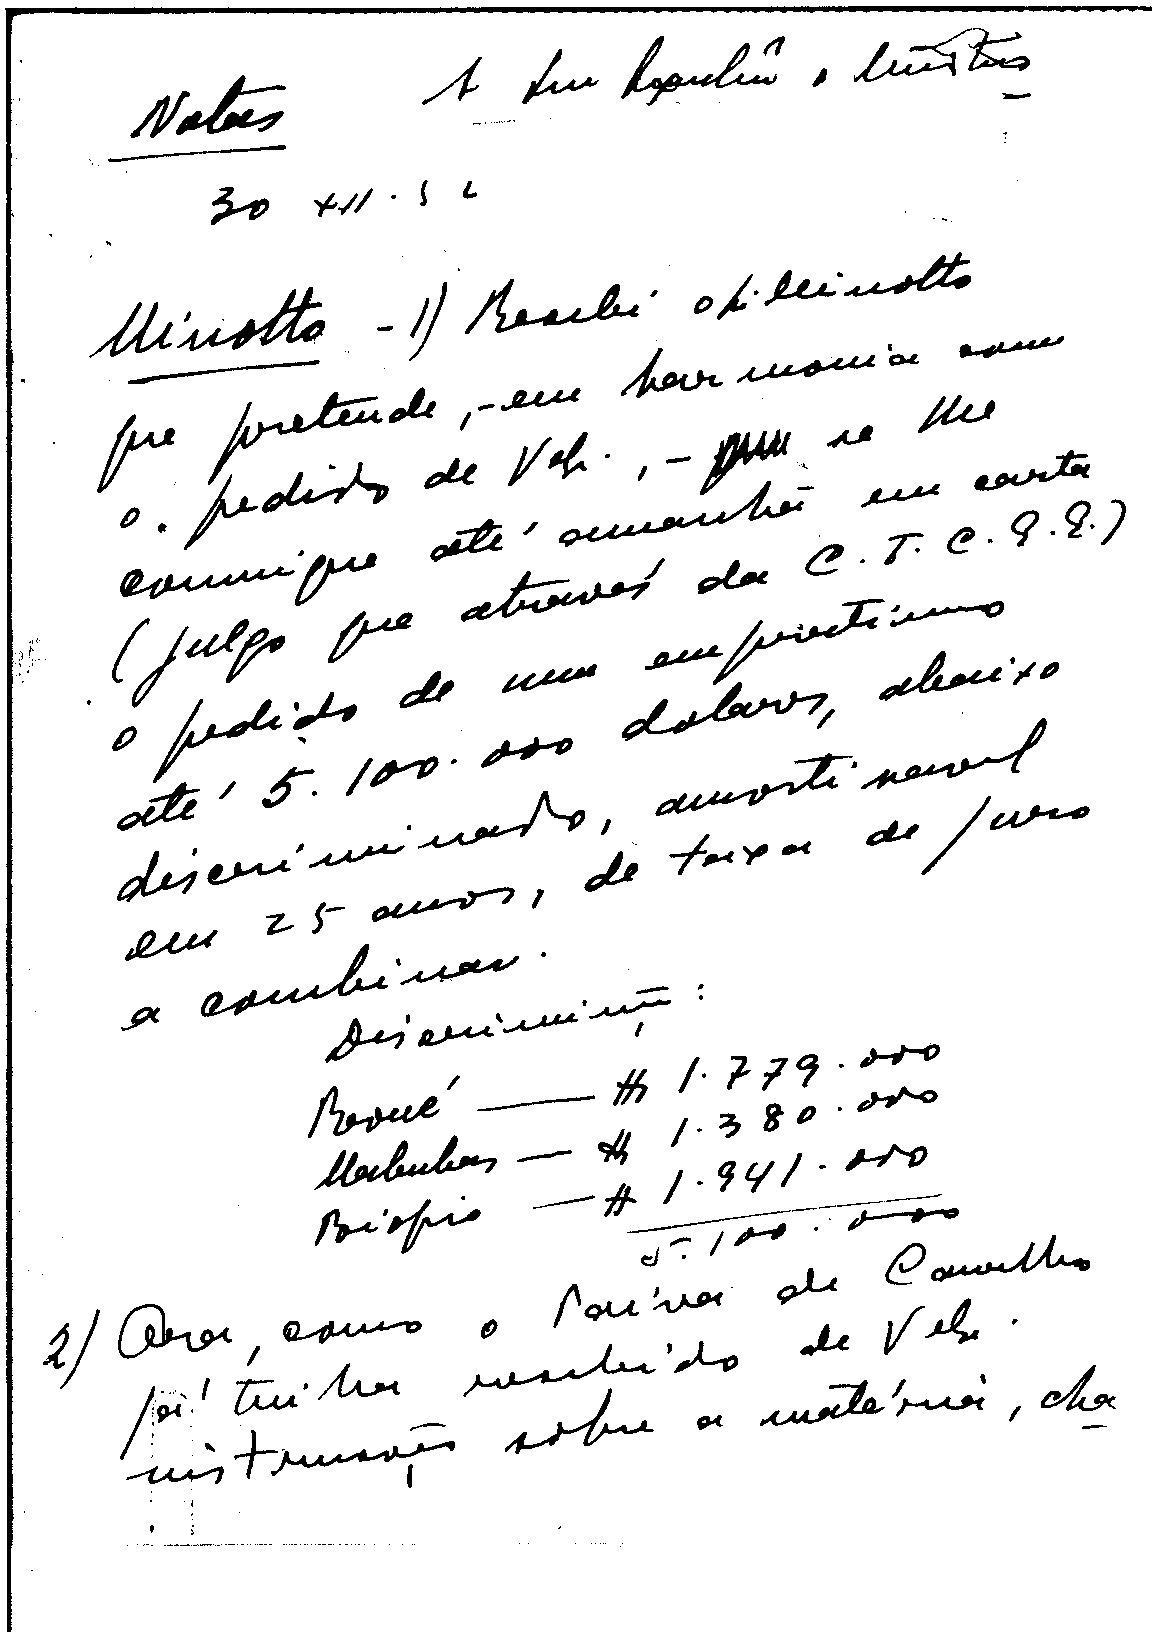 Notas
A Sua Excelência o Ministro
30 XII. 52
Minotto - 1) Recebi o Sr. Minotto
que pretende, - em harmonia com
o. pedido de V. Ex. , - se lhe
comunique até amanhã em carta
(julgo que através da C. T. C. E. E.)
o pedido de um emprestimo
até 5. 100. 000 dolares, abaixo
discriminado, amortizavel
em 25 anos, de taxa de juro
a combinar.
Discriminação:
Revué —— $ 1. 779. 000
Mabubas — $ 1. 380. 000
Biópio — $ 1. 941. 000
5. 100. 000
2) Ora, como o Paiva de Carvalho
já tinha recebido de V. Ex.
instruções sobre a matéria, cha